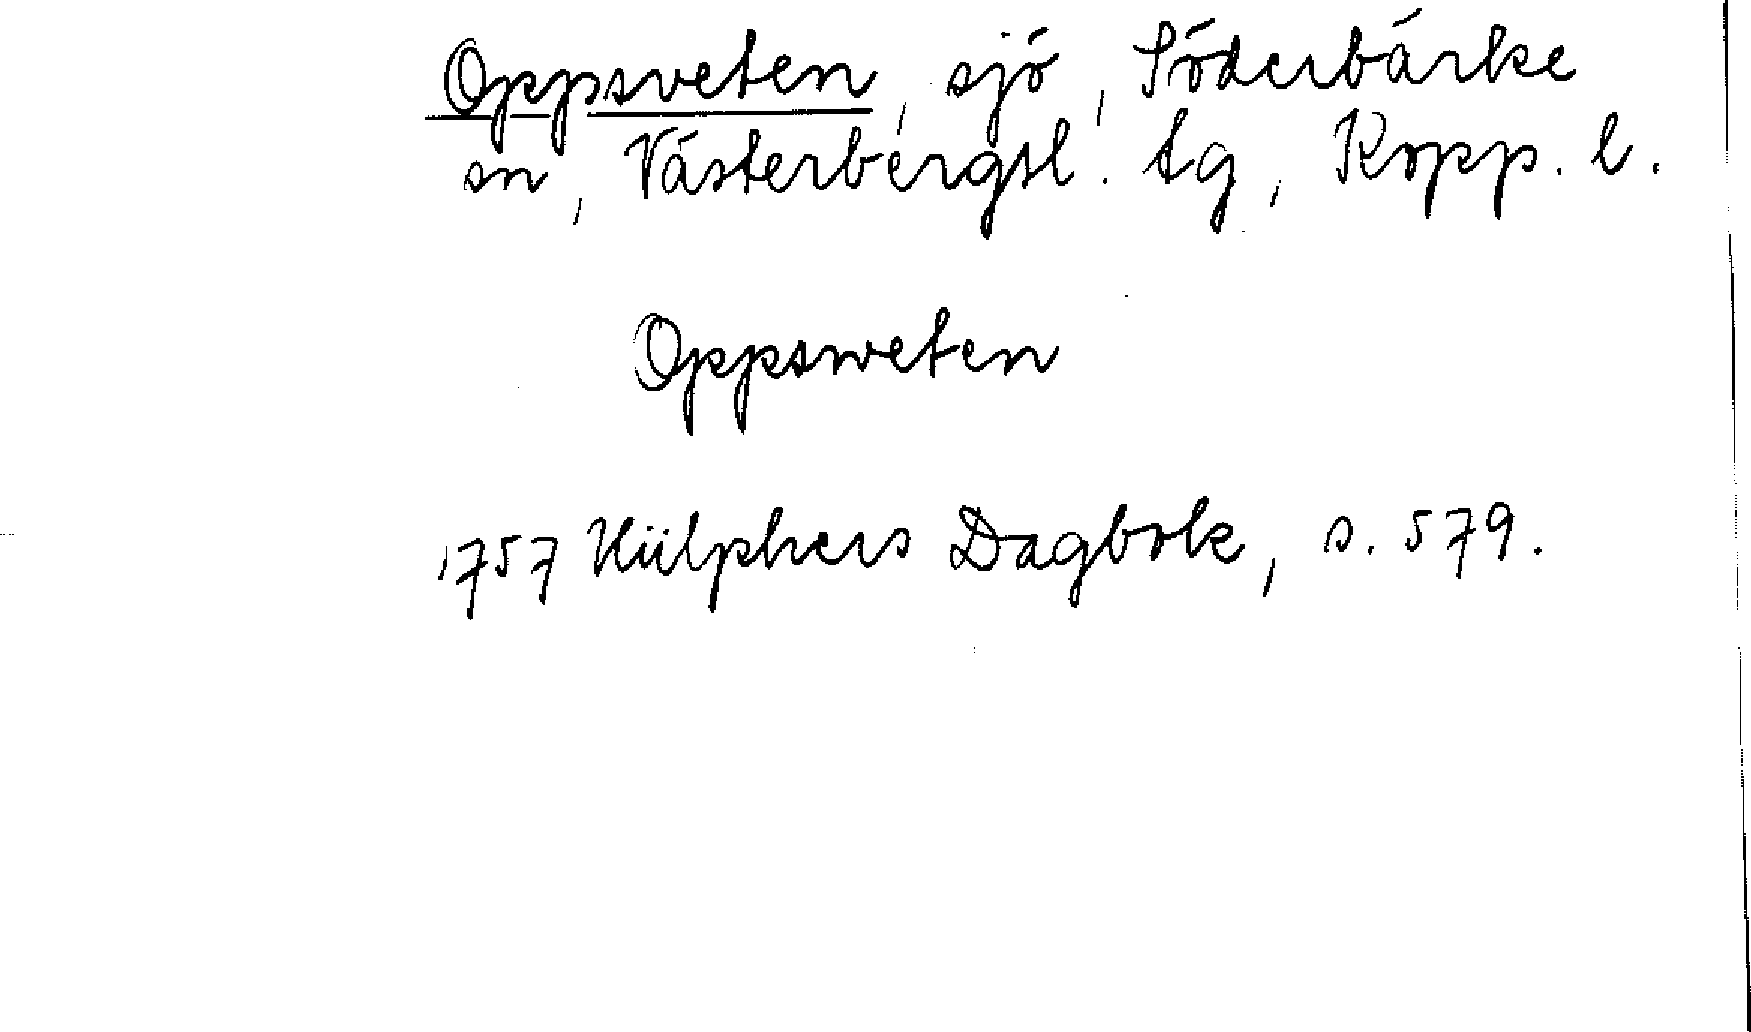 Oppsveten, sjö, Söderbärke
sn, Västerbergsl. tg, Kopp. l.
Oppsweten
1757 Hülphers Dagbok, s. 579.